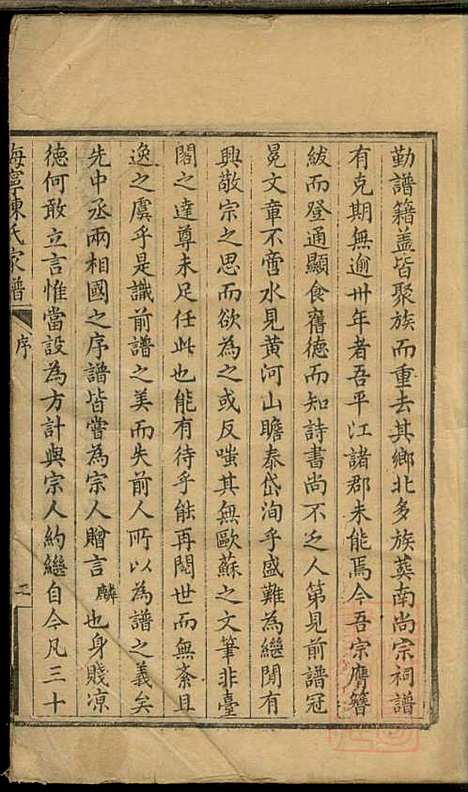 勤譜籍盖皆聚族而重去其鄉北多族葬南尚宗祠譜
有克期無逾卅年者吾平江諸郡未能焉今吾宗膺簪
紱而登通顯食舊德而知詩書尚不乏人第見前譜冠
冕文章不啻水見黄河山瞻泰岱洵乎盛難為繼閒有
興敬宗之思而欲為之或反嗤其無歐蘇之文筆非臺
閣之達尊未足任此也能有待乎能再閱世而無紊且
逸之虞乎是識前譜之美而失前人所以為譜之義矣
先中丞兩相國之序譜皆嘗為宗人贈言麟也身賤凉
德何敢立言惟當設為方計與宗人約繼自今凡三十
海寧陳氏家譜 序 二